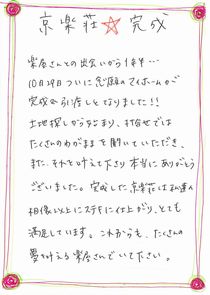 京楽荘☆完成
楽居さんとの出会いから1年半…
10月29日ついに念願のマイホームが
完成&引渡しとなりました!!
土地探しから始まり、打合せでは
たくさんのわがままを聞いていただき、
また、それを叶えて下さり本当にありがとう
ございました。完成した京楽荘は私達の
想像以上にステキに仕上がり、とても
満足しています。これからも、たくさんの
夢叶える楽居さんでいて下さい。